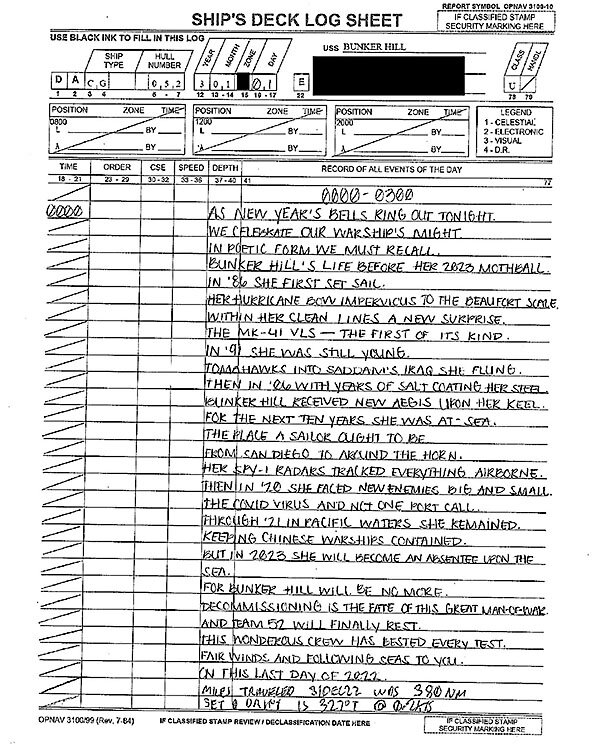 REPORT SYMBOL OPNAV 3100-10
SHIP'S DECK LOG SHEET
IF CLASSIFIED STAMP
SECURITY MARKING HERE
USE BLACK INK TO FILL IN THIS LOG
USS BUNKER HILL
SHIP TYPE HULL NUMBER YEAR MONTH ZONE DAY CLASS HANDL
D A C G 0 5 2 3 0 1 0 1 E U
1 2 3 4 6 - 7 12 13 - 14 15 16 - 17 32 78 79
POSITION ZONE TIME POSITION ZONE TIME POSITION ZONE TIME LEGEND
0800 1200 2000 1 - CELESTIAL
L BY L BY L BY 2 - ELECTRONIC
3 - VISUAL
λ BY λ BY λ BY 4 - D.R.
TIME ORDER CSE SPEED DEPTH RECORD OF ALL EVENTS OF THE DAY
18 - 21 23 - 29 30 - 32 33 - 36 37 - 40 41 77
0000 - 0300
0000 AS NEW YEAR'S BELLS RING OUT TONIGHT.
WE CELEBRATE OUR WARSHIP'S MIGHT.
IN POETIC FORM WE MUST RECALL.
BUNKER HILL'S LIFE BEFORE HER 2023 MOTHBALL.
IN '86 SHE FIRST SET SAIL.
HER HURRICANE BOW IMPERVIOUS TO THE BEAUFORT SCALE.
WITHIN HER CLEAN LINES A NEW SURPRISE.
THE MK-41 VLS — THE FIRST OF ITS KIND.
IN '91 SHE WAS STILL YOUNG.
TOMAHAWKS INTO SADDAM'S IRAQ SHE FLUNG.
THEN IN '06 WITH YEARS OF SALT COATING HER STEEL.
BUNKER HILL RECEIVED NEW AEGIS UPON HER KEEL.
FOR THE NEXT TEN YEARS SHE WAS AT-SEA.
THE PLACE A SAILOR OUGHT TO BE
FROM SAN DIEGO TO AROUND THE HORN.
HER SPY-1 RADARS TRACKED EVERYTHING AIRBORNE.
THEN IN '20 SHE FACED NEW ENEMIES BIG AND SMALL.
THE COVID VIRUS AND NOT ONE PORT CALL.
THROUGH '21 IN PACIFIC WATERS SHE REMAINED.
KEEPING CHINESE WARSHIPS CONTAINED.
BUT IN 2023 SHE WILL BECOME AN ABSENTEE UPON THE
SEA.
FOR BUNKER HILL WILL BE NO MORE.
DECOMMISSIONING IS THE FATE OF THIS GREAT MAN-OF-WAR.
AND TEAM 52 WILL FINALLY REST.
THIS WONDEROUS CREW HAS BESTED EVERY TEST.
FAIR WINDS AND FOLLOWING SEAS TO YOU.
ON THIS LAST DAY OF 2022.
MILES TRAVELED 31DEC22 WAS 380 NM
SET & DRIFT IS 327°T @ 0.2KTS
OPNAV 3100/99 (Rev. 7-84) IF CLASSIFIED STAMP REVIEW / DECLASSIFICATION DATE HERE
IF CLASSIFIED STAMP
SECURITY MARKING HERE